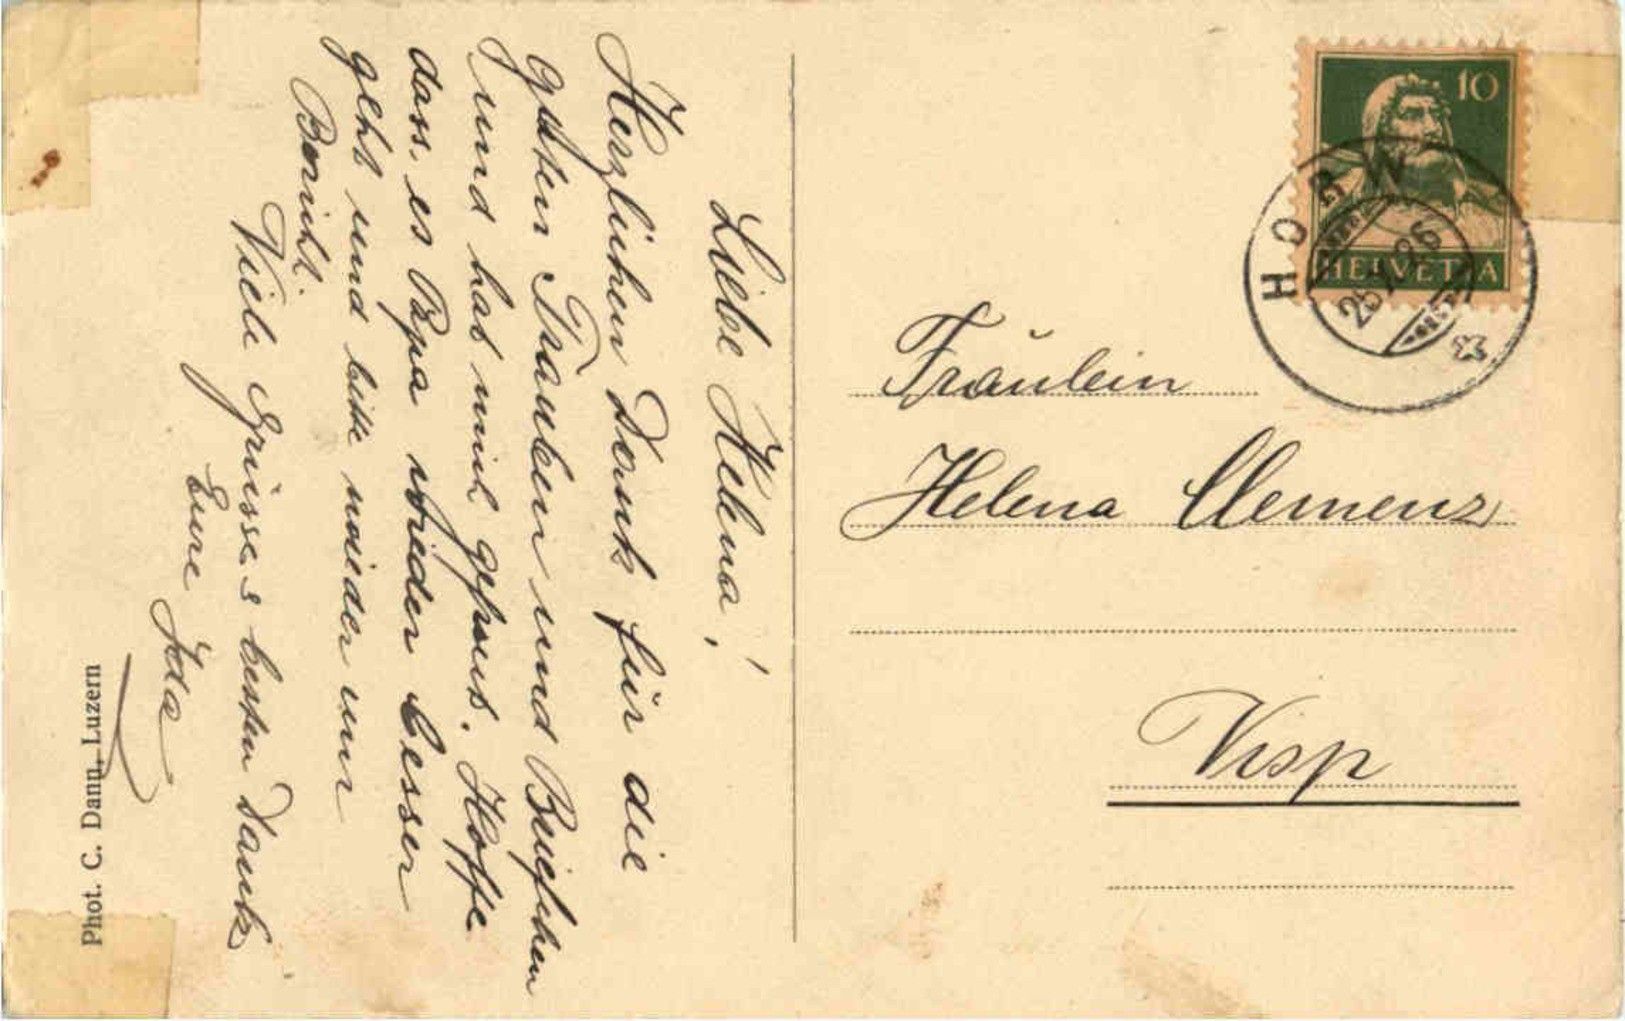 Liebe Helena!
Herzlichen Dank für die
guten Trauben und Briefchen
und hat mich gefreut. Hoffe
dass es Papa wieder besser
geht und bitte wieder um
Bericht.
Viele Grüsse & besten Dank
Eure Ida
Phot. C. Dann, Luzern
10
HELVETIA
HORW
Fräulein
Helena Clemenz
Visp